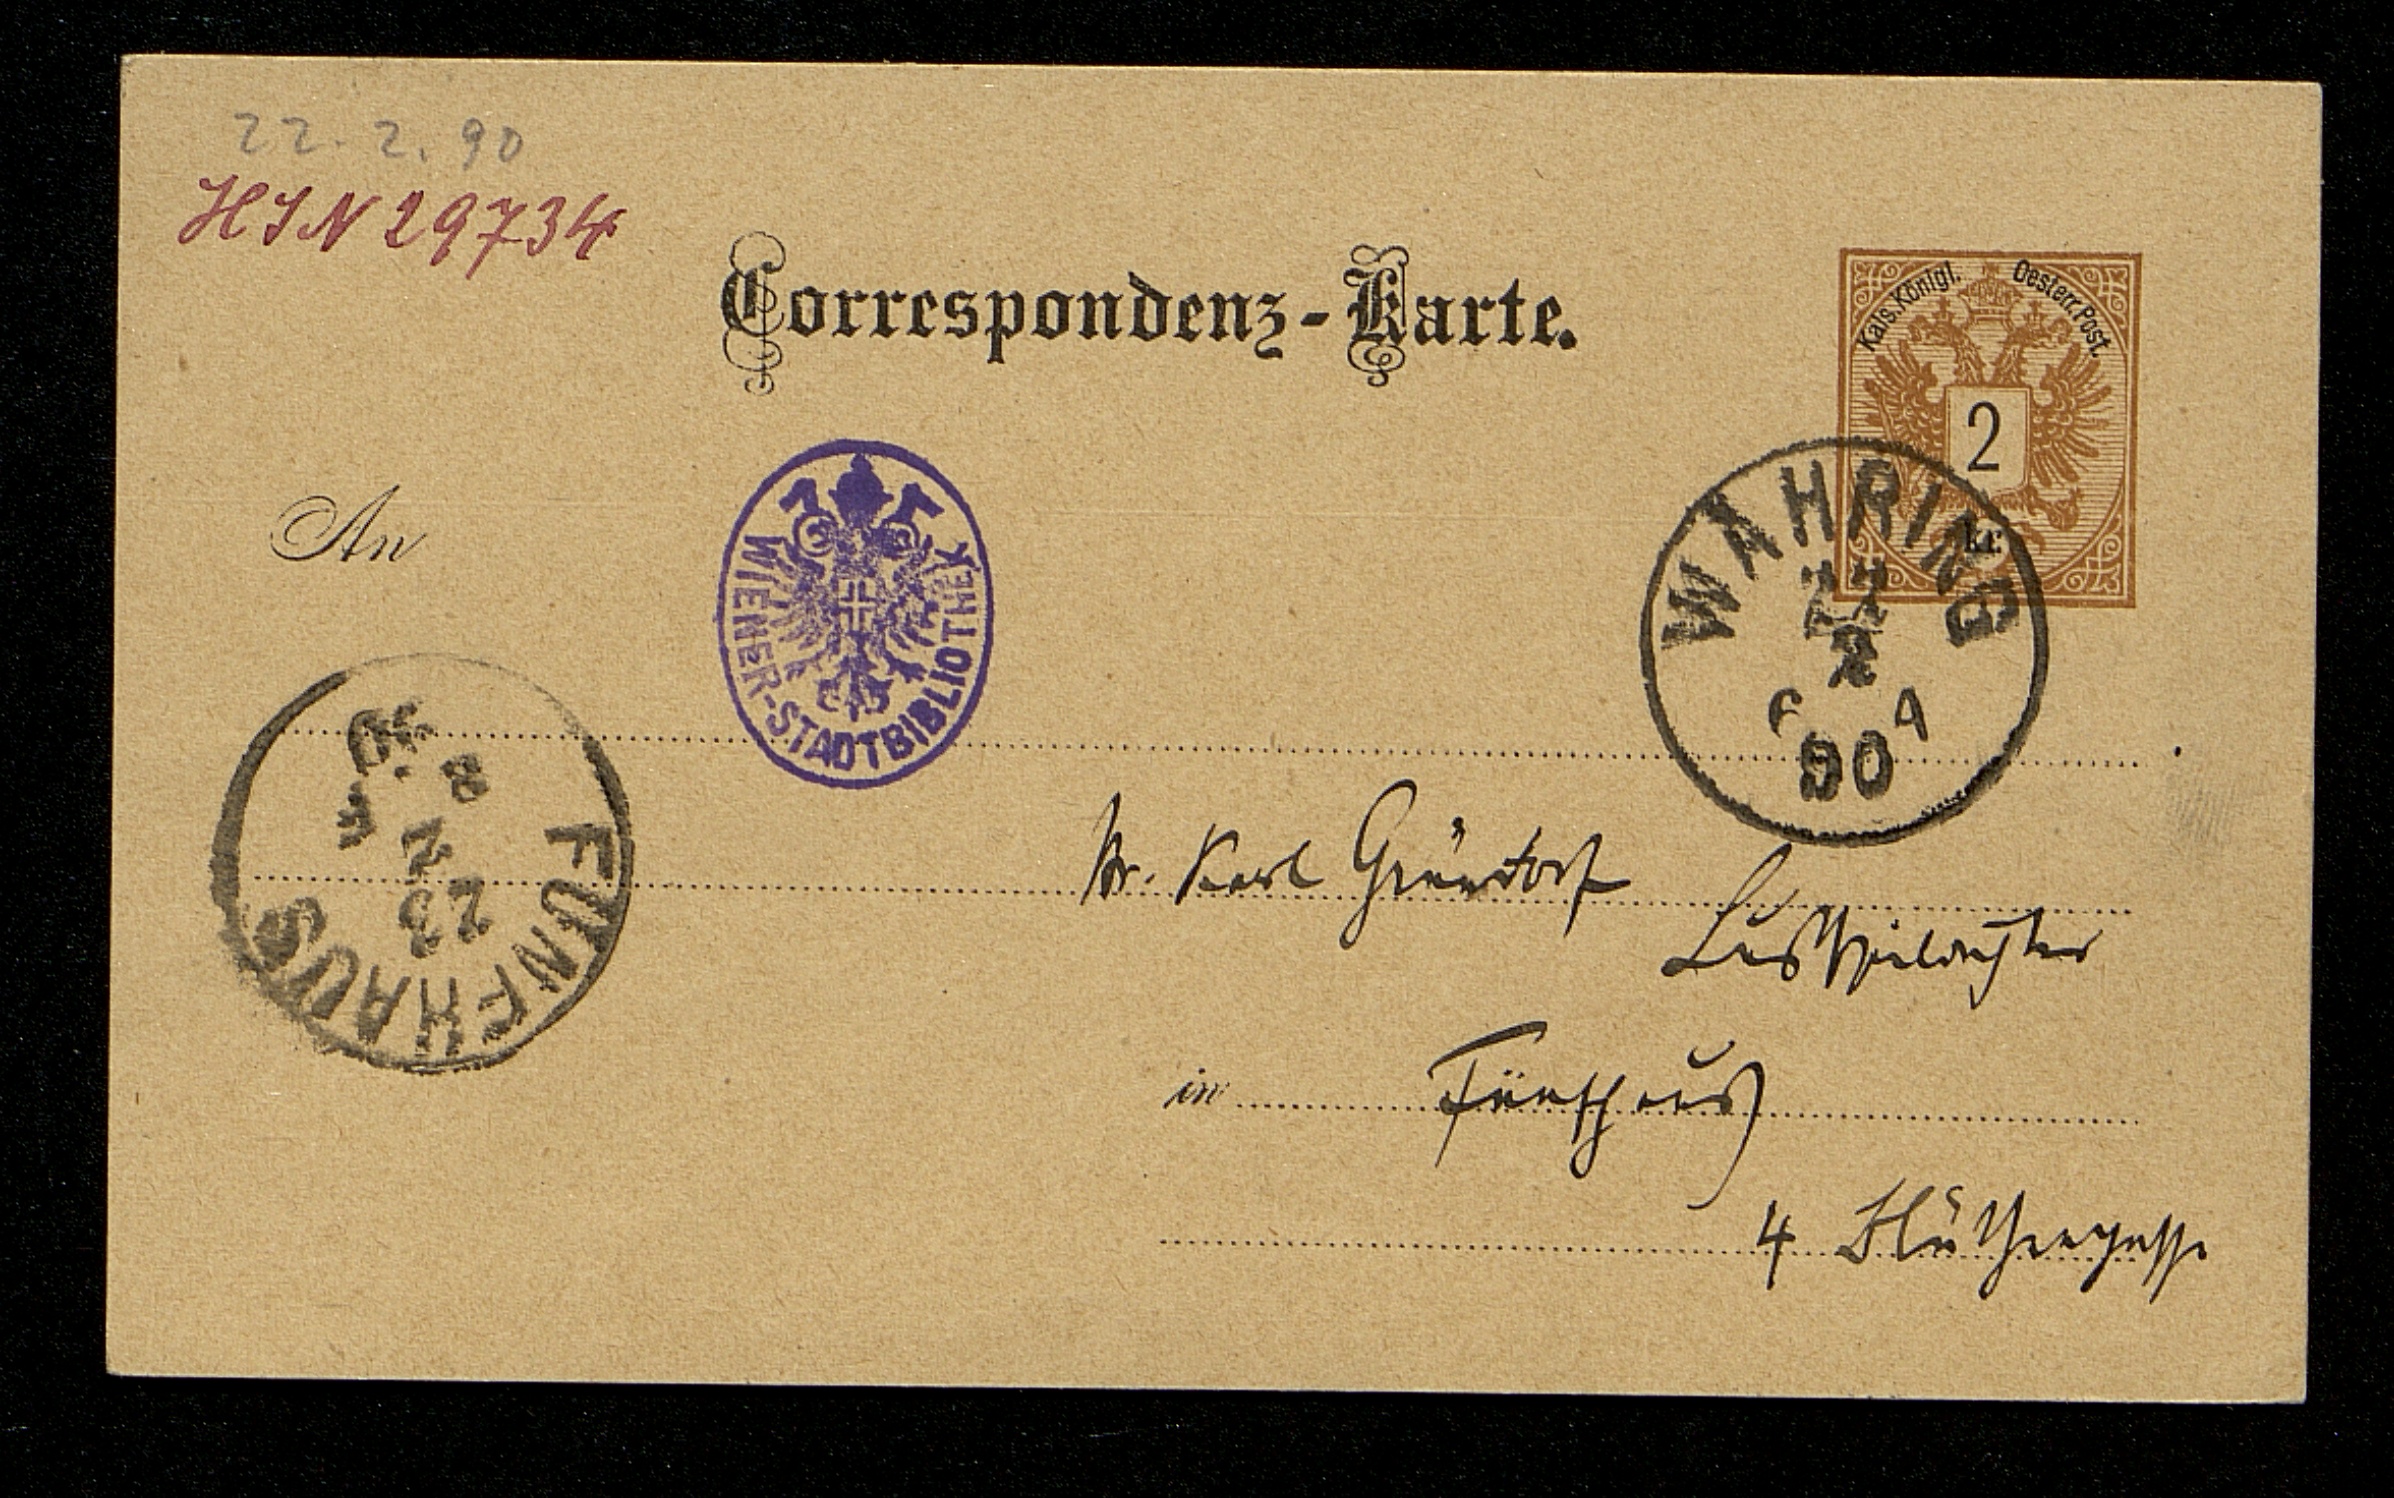 22. 2. 90
HIN 29734
Correspondenz-Karte.
Kais. Königl. Oesterr. Post.
2
kr.
An
WIENER-STADTBIBLIOTHEK
WÄHRING
22
2
90
FÜNFHAUS
23
2
8
90
Hr. Karl Gründorf
Lustspieldichter
in Fünfhaus
4 Blüthengasse